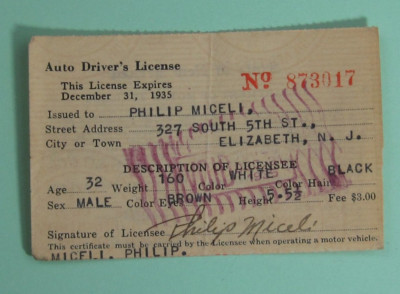 Auto Driver's License
This License Expires
December 31, 1935
No 873017
Issued to PHILIP MICELI,
Street Address 327 SOUTH 5TH ST.,
City or Town ELIZABETH, N. J.
DESCRIPTION OF LICENSEE
Age 32 Weight 160 Color WHITE Color Hair BLACK
Sex MALE Color Eyes BROWN Height 5.5½ Fee $3.00
Signature of Licensee Philip Miceli
This certificate must be carried by the Licensee when operating a motor vehicle.
MICELI, PHILIP.